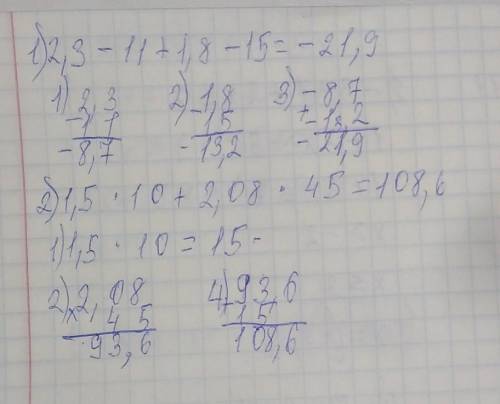 1) 2,3 - 11 + 1,8 - 15 = - 21,9
1) 2,3 2) 1,8 3) - 8,7
- 11 - 15 + - 13,2
- 8,7 - 13,2 - 21,9
2) 1,5 · 10 + 2,08 · 45 = 108,6
1) 1,5 · 10 = 15 -
2) 2,08 4) 93,6
× 4 5 + 15
93,6 108,6